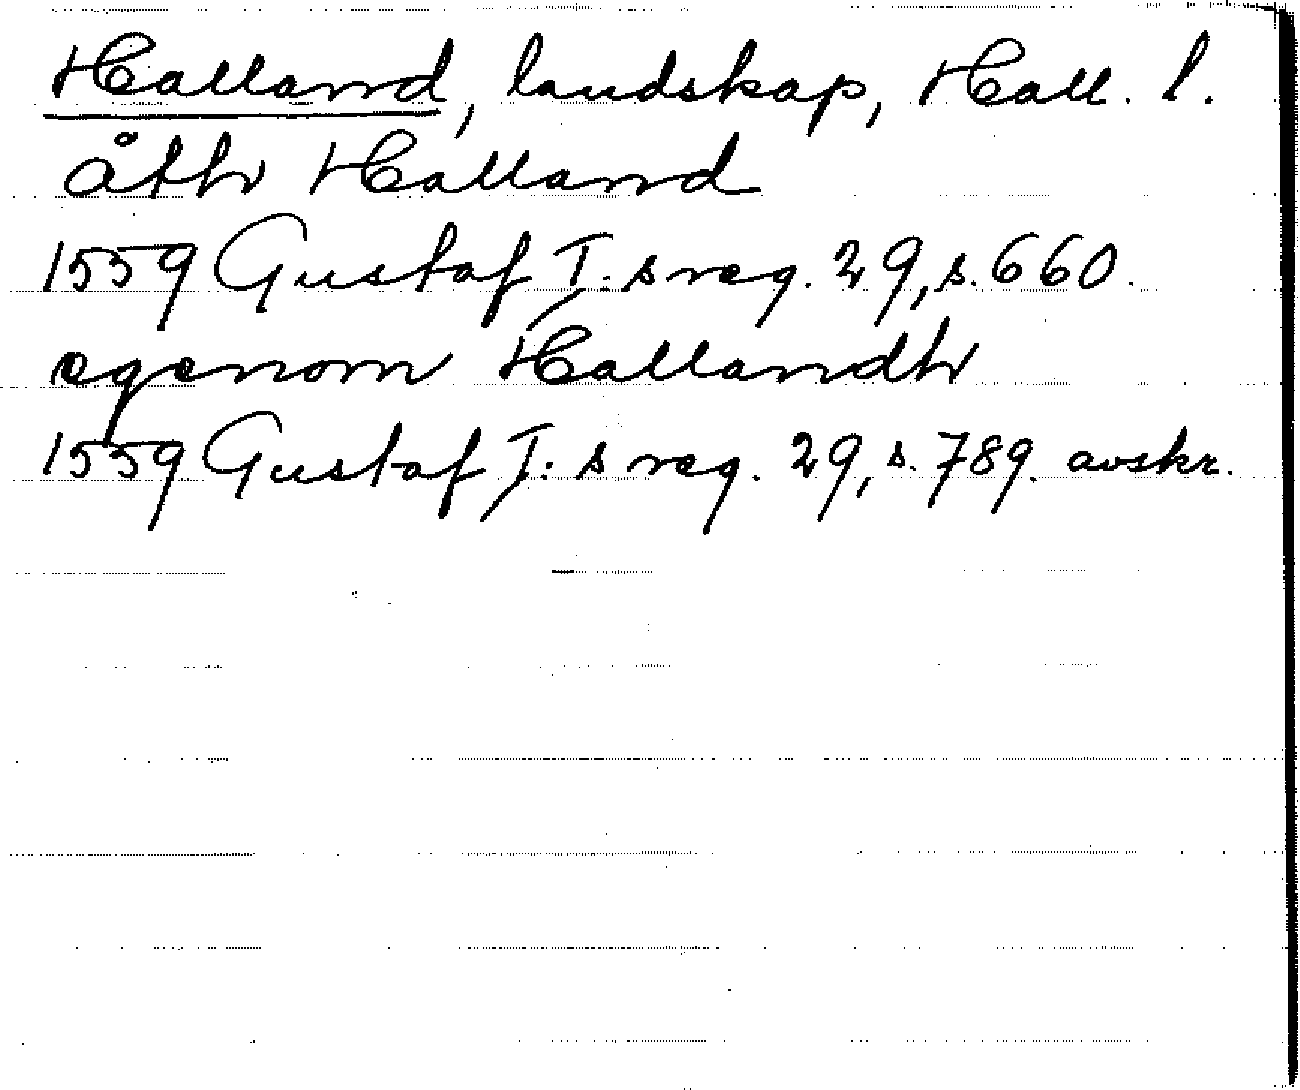 Halland, landskap, Hall. l.
åth Halland
1559 Gustaf I:s reg. 29, s. 660.
egenom Hallandh
1559 Gustaf I:s reg. 29, s. 789. avskr.